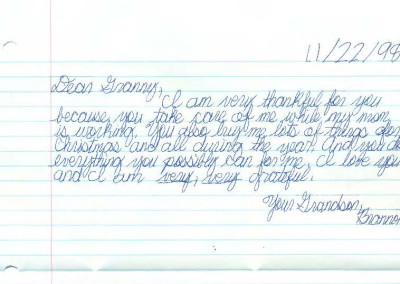 11/22/98
Dear Granny,
I am very thankful for you
because you take care of me while my mom
is working. You also buy me lots of things for
Christmas and all during the year. And you do
everything you possibly can for me. I love you
and I am very, very grateful.
Your Grandson,
Brannon